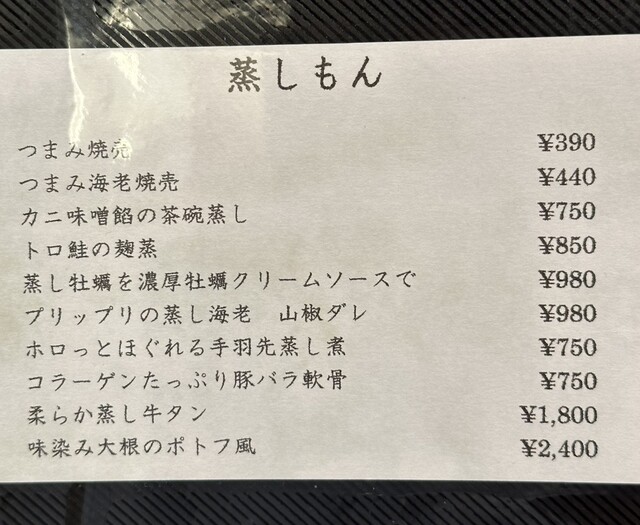 蒸しもん
つまみ焼売 ¥390
つまみ海老焼売 ¥440
カニ味噌餡の茶碗蒸し ¥750
トロ鮭の麹蒸 ¥850
蒸し牡蠣を濃厚牡蠣クリームソースで ¥980
プリップリの蒸し海老　山椒ダレ ¥980
ホロっとほぐれる手羽先蒸し煮 ¥750
コラーゲンたっぷり豚バラ軟骨 ¥750
柔らか蒸し牛タン ¥1,800
味染み大根のポトフ風 ¥2,400